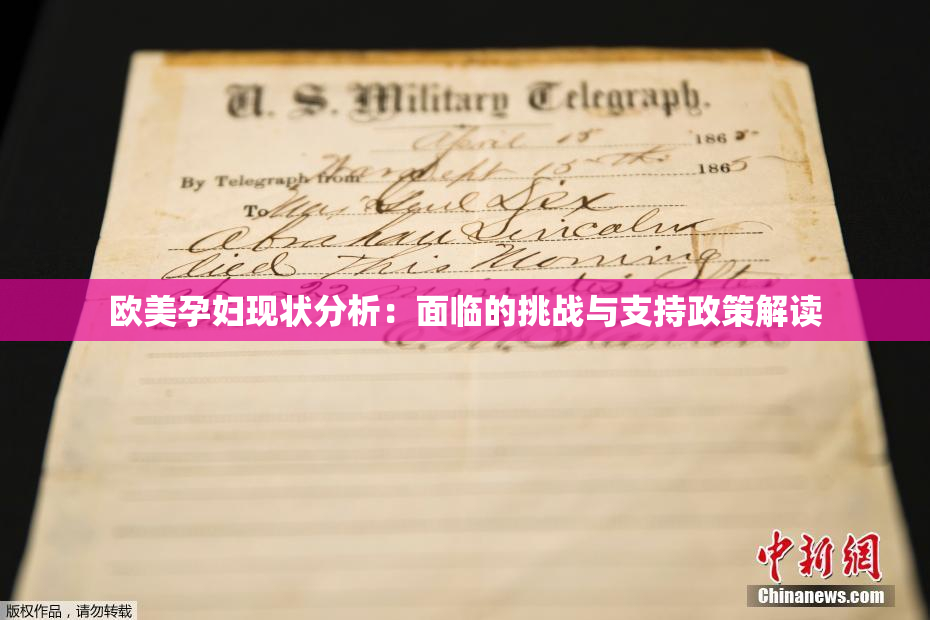 U. S. Military Telegraph.
April 15 1865
By Telegraph from War Dept 15th 1865
To Maj Genl Dix
Abraham Lincoln
died This Morning
22 minutes after
欧美孕妇现状分析：面临的挑战与支持政策解读
中新网
Chinanews.com
版权作品，请勿转载